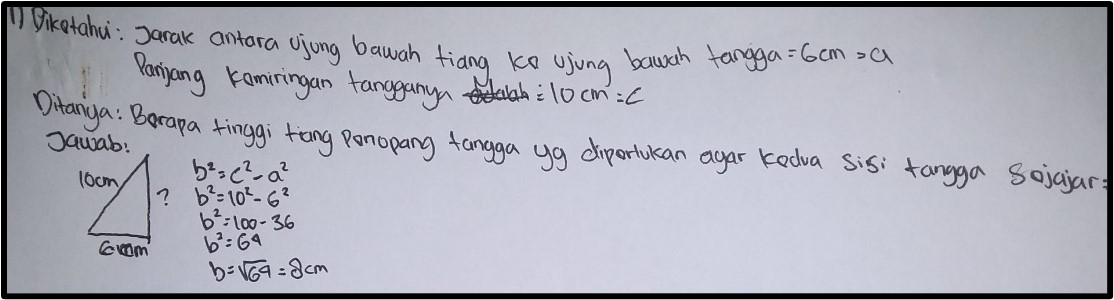 1) Diketahui: Jarak antara ujung bawah tiang ke ujung bawah tangga = 6cm = a
Panjang kemiringan tangganya adalah = 10 cm = c
Ditanya: Berapa tinggi tiang penopang tangga yg diperlukan agar kedua sisi tangga sejajar:
Jawab:
10cm
?
6 cm
b² = c² - a²
b² = 10² - 6²
b² = 100 - 36
b² = 64
b = √64 = 8cm